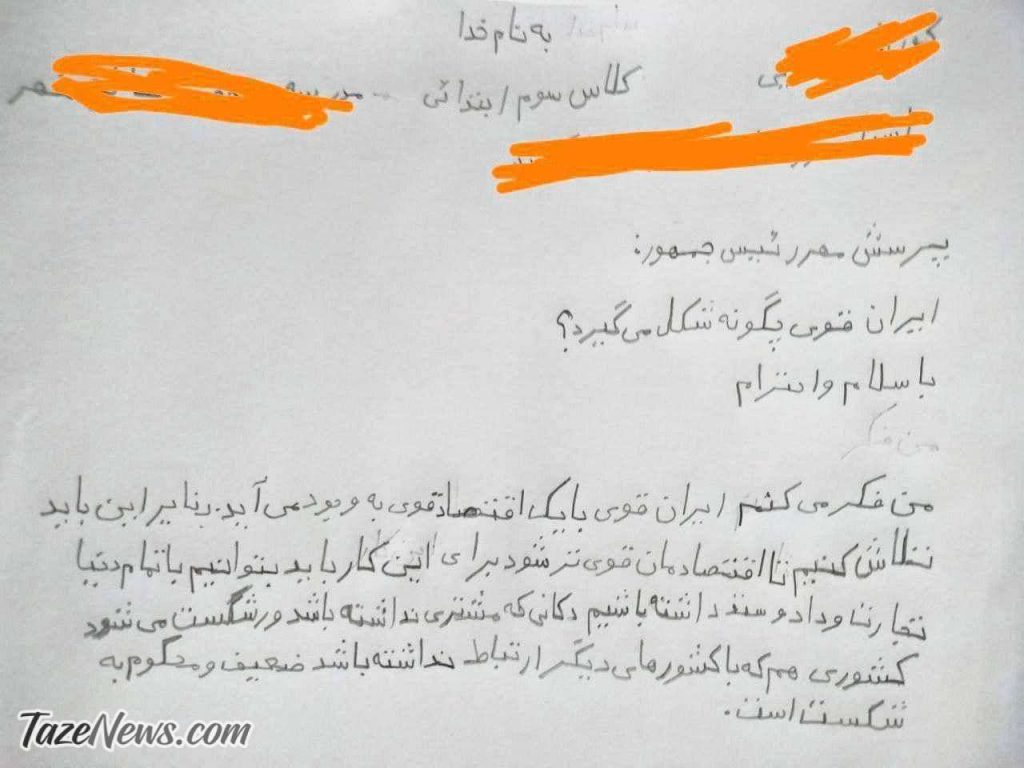 به نام خدا
کلاس سوم ابتدائی - مدرسه
پرسش مهر رئیس جمهور:
ایران قوی چگونه شکل می‌گیرد؟
با سلام و احترام
من فکر
من فکر می کنم ایران قوی با یک اقتصاد قوی به وجود می آید. بنابراین باید
تلاش کنیم تا اقتصادمان قوی تر شود برای این کار باید بتوانیم با تمام دنیا
تجارت و داد و ستد داشته باشیم دکانی که مشتری نداشته باشد ورشکست می شود
کشوری هم که با کشورهای دیگر ارتباط نداشته باشد ضعیف و محکوم به
شکست است.
TazeNews.com